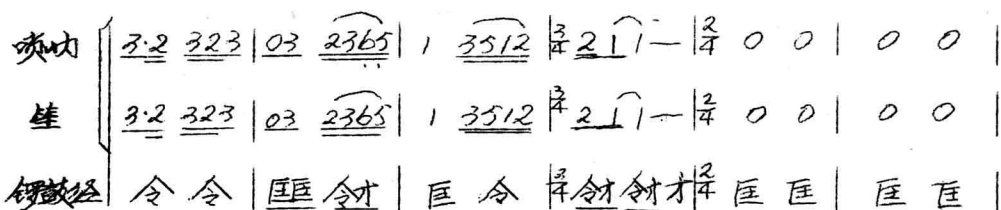 唢呐 3·2 323 | 03 2365 | 1 3512 | 3/4 2 1 1 — | 2/4 0 0 | 0 0 |
笙 3·2 323 | 03 2365 | 1 3512 | 3/4 2 1 1 — | 2/4 0 0 | 0 0 |
锣鼓经 令 令 | 匡匡 令才 | 匡 令 | 3/4 令才 令才 才 | 2/4 匡 匡 | 匡 匡 |